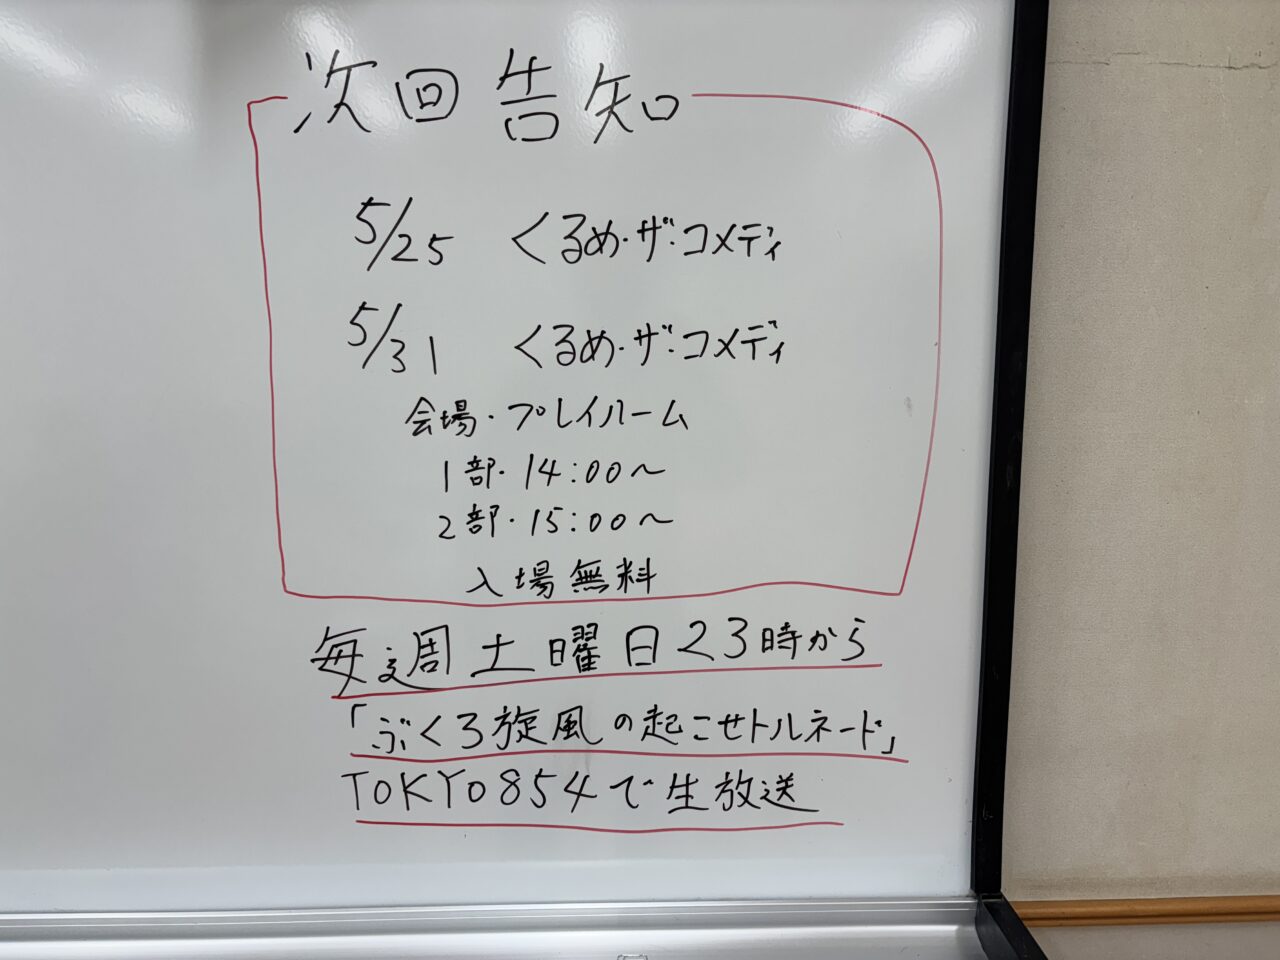 次回告知
5/25 くるめ・ザ・コメディ
5/31 くるめ・ザ・コメディ
会場・プレイルーム
1部・14:00～
2部・15:00～
入場無料
毎週土曜日23時から
「ぶくろ旋風の起こせトルネード」
TOKYO854で生放送